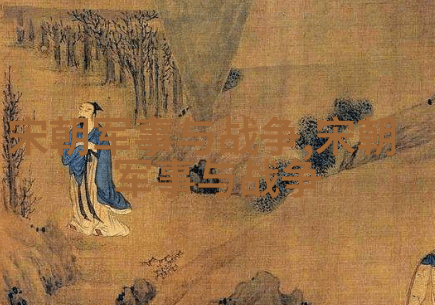 宋朝军事与战争 宋朝
军事与战争